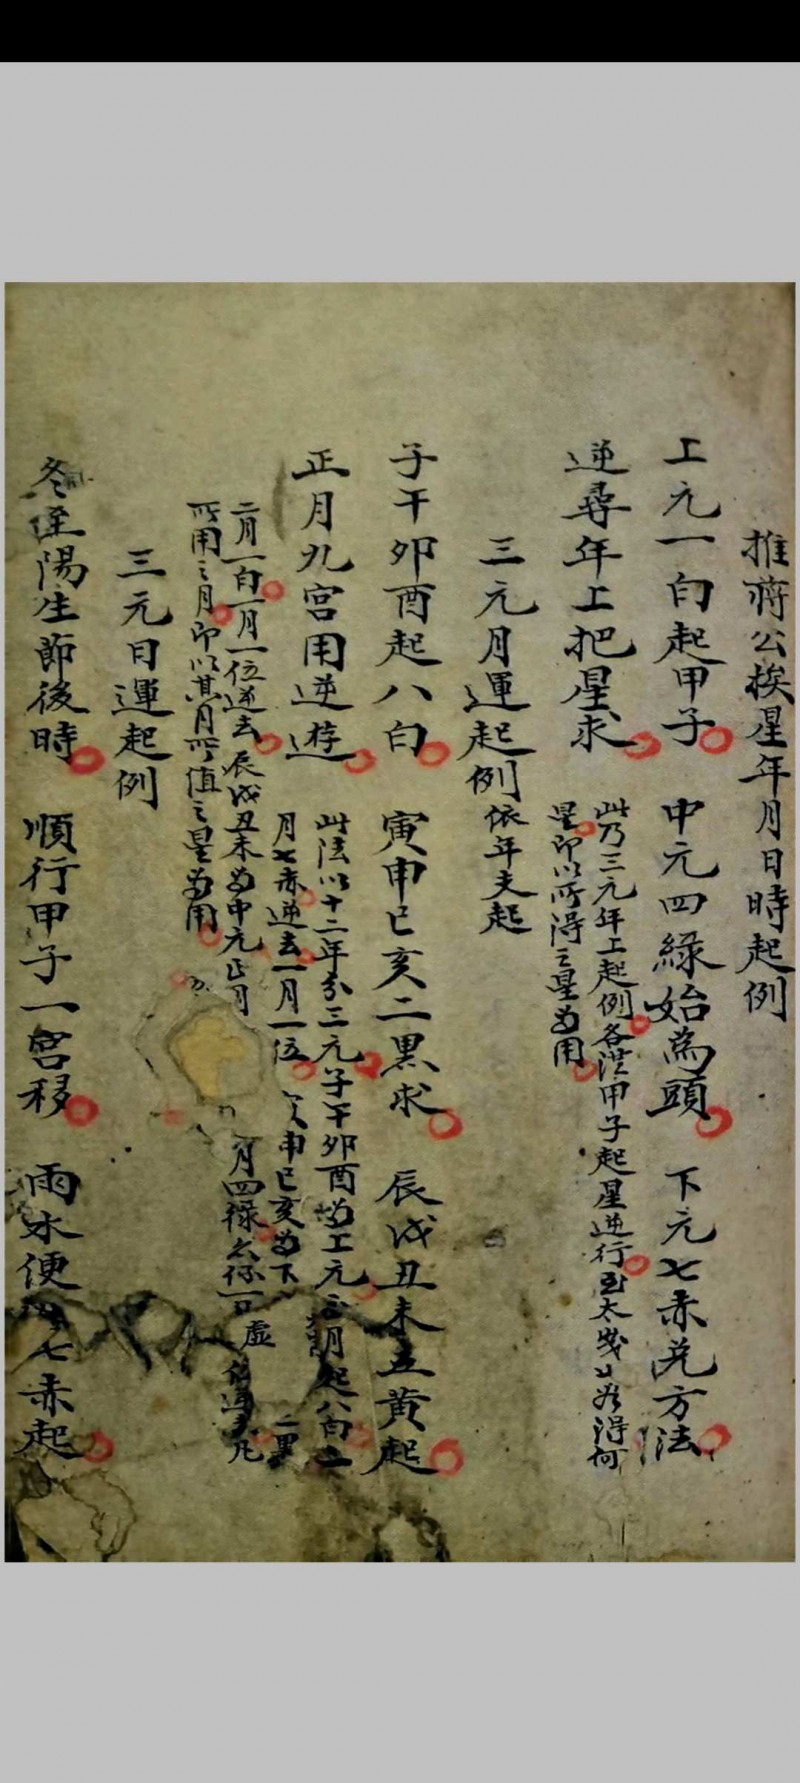 推蔣公挨星年月日時起例
上元一白起甲子　中元四綠始為頭　下元七赤兌方法
逆尋年上把星求
此乃三元年上起例各從甲子起星逆行至太歲止看得何
星即以所得之星為用
三元月運起例依年支起
子午卯酉起八白　寅申巳亥二黑求　辰戌丑未五黃起
正月九宮用逆遊
此法以十二年分三元子午卯酉為上元正月起八白二
月七赤逆去一月一位　申巳亥為下　二黑
二月一白一月一位逆去辰戌丑未為中元正月　月四祿　虛　凡
所用之月即以其月所值之星為用
三元日運起例
冬至陽生節後時　順行甲子一宮移　雨水便　七赤起